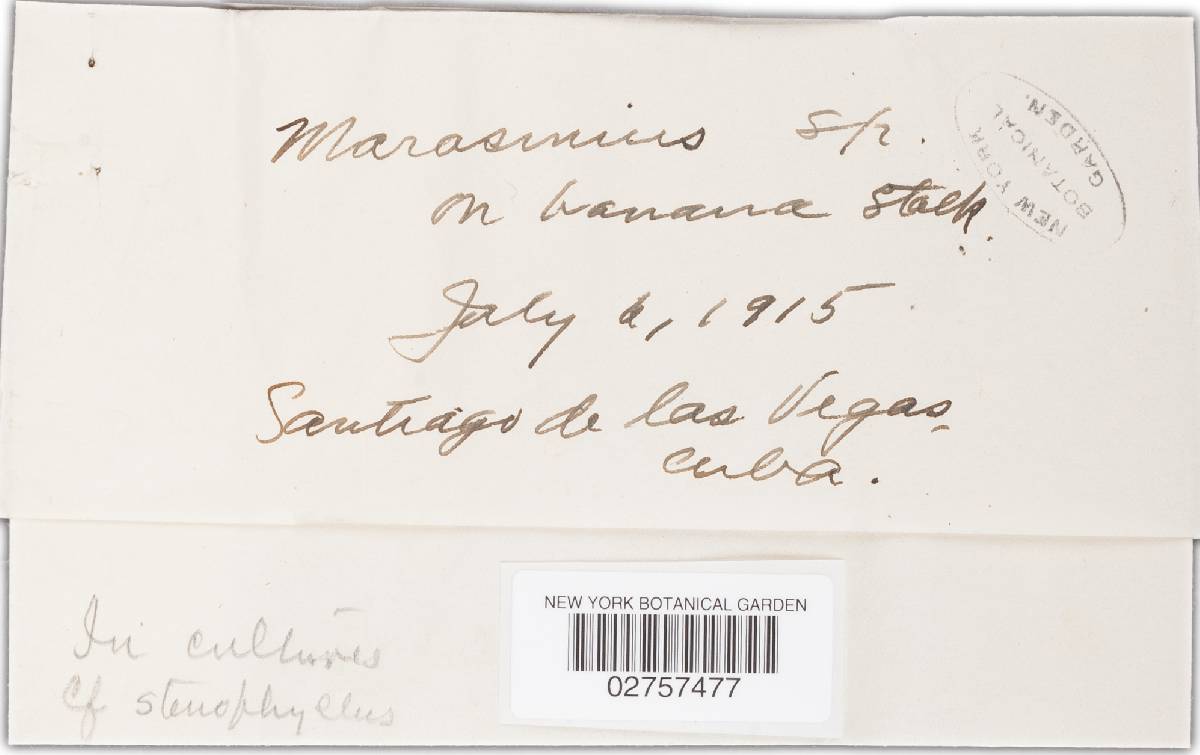 Marasmius sp.
on banana stalk.
July 6, 1915
Santiago de las Vegas,
Cuba.
NEW YORK
BOTANICAL
GARDEN.
In cultures
Cf stenophyllus
NEW YORK BOTANICAL GARDEN
02757477